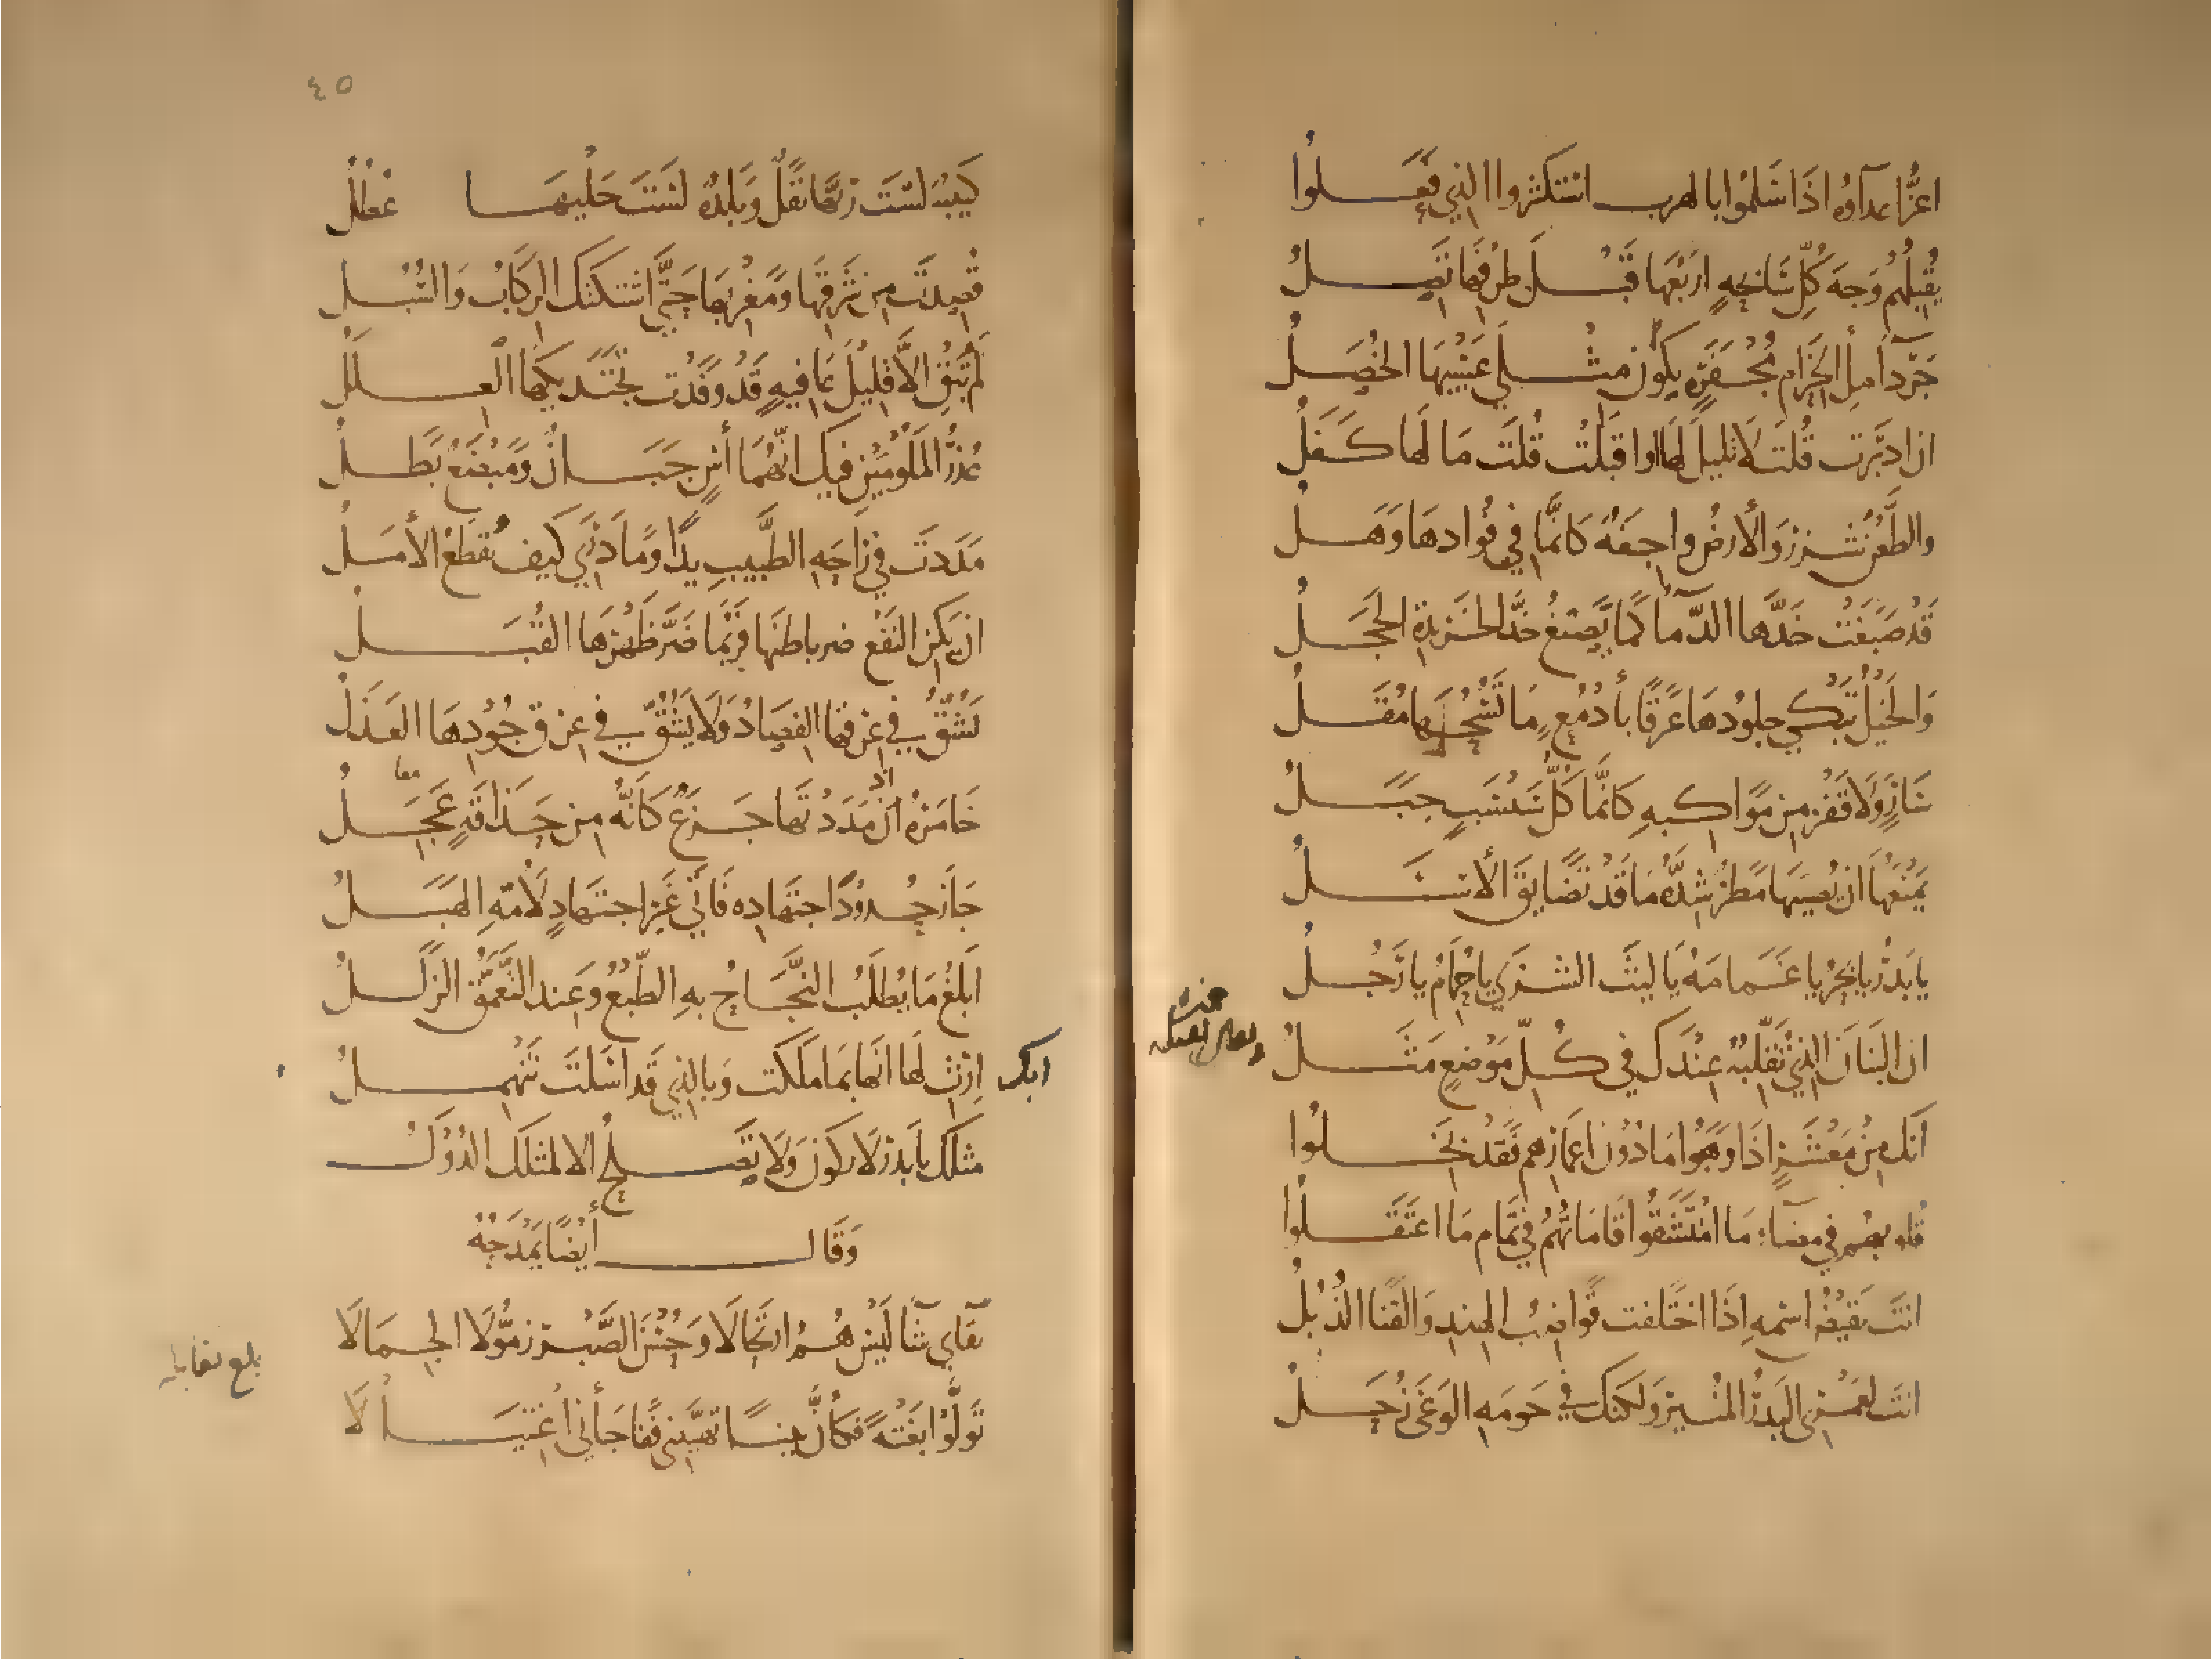 اعزُّ اعدآوه اذَا سَلمُوا بالهرب استكثروا الذي فعَلوا
يُقبلُهم وَجهَ كُلِّ سَابحةٍ اربعُها قبل طرفها تصلُ
جَردآ ملء الحزام مُجفرة يكون مثلي عَسيبهَا الخُصَلُ
ان ادبَرت قُلت لا تليل لَها او اقبَلت قُلت مَا لَها كَفَلُ
والطَّعن شزر وَالأرضُ واجفة كانّما في فوادهَا وَهَلُ
قَد صبَغت خدَّها الدّمآ كما يَصبغ خدَّ الخريدةِ الخجَلُ
وَالخَيلُ تبكي جلودُهَا عَرَقًا بأدمُعٍ مَا تسُحُّها مُقَلُ
سَارٍ وَلا قَفر من مَواكبهِ كانّما كُلُّ سَبْسَبٍ جبَلُ
يَمنعُهَا ان يُصيبهَا مطرٌ شِدَّة مَا قَد تضَايق الأسَلُ
يا بَدر يا بَحر يا غَمامَة يَا ليثَ الشرى يا حِمامُ يا رَجُلُ
ان البنَان الذي تُقلّبهُ عندَك في كُلّ مَوْضعٍ مَثلُ
انك من مَعشرٍ اذا وهَبوا مَا دُون اعمارهم فقد بَخلوا
قلوبهم في مضآء مَا امتشقُوا قَامَاتُهُم في تمَام مَا اعتقَلُوا
انتَ نقيضُ اسمهِ اذا اختلفت قواضبُ الهند وَالقنا الذُبُلُ
انتَ لعَمري البَدر المُنير وَلكنك في حَومةِ الوَغَى زُحَلُ
٤٥
كتيبة لستَ ربَّها نفَلٌ وَبلدة لَستَ حَليهَا عُطُلُ
قُصِدتَ من شرقها وَمغربها حتَّى اشتكتك الركابُ وَالسُبُلُ
لَم تُبقِ الَّا قليلَ عافيةٍ قد وفدت تجتديكها العِلَلُ
عُذرُ المَلُومَين فيك انّهُمَا آسٍ جبَانٌ وَمبضَعٌ بَطلُ
مَددتَ في رَاحةِ الطَّبيب يدًا ومَا دَرى كَيف تُقطَع الأمَلُ
ان يكن النفع ضر باطنَها فربّما ضَرّ ظَهرَها القُبَلُ
يَشقُّ في عِرقها الفِصَادُ وَلَا يَشقُّ في عِرق جُودِهَا العَذَلُ
خَامَرهُ ان مَدَدتَها جَزَعٌ كَأنَّهُ من حَذاقةٍ عَجِلُ
اذ
معا
جَاز حُدودَ اجتهاده فَاتى غيرَ اجتهادٍ لأمّهِ الهَبَلُ
اَبلغُ مَا يُطلَبُ النَّجَاحُ بهِ الطّبعُ وَعند التَّعمُّق الزَّلَلُ
اِرثِ لَها انّها بمَا ملَكَت وَبالذي قَد اسَلتَ تَنهملُ
ابك
مثلك يا بَدر لَا يكون وَلَا تصلحُ الا لمثلك الدُوَلُ
وَقَال أيضًا يَمدَحهُ
بقَاي شآ لَيسَ هُم ارتحَالَا وَحُسنَ الصَّبر زمُّوا لَا الجمَالَا
تَولَّوا بَغتةً فكأنَّ بينًا تهيّبني ففَاجَأني اغتيَالَا
بلغ مقابله